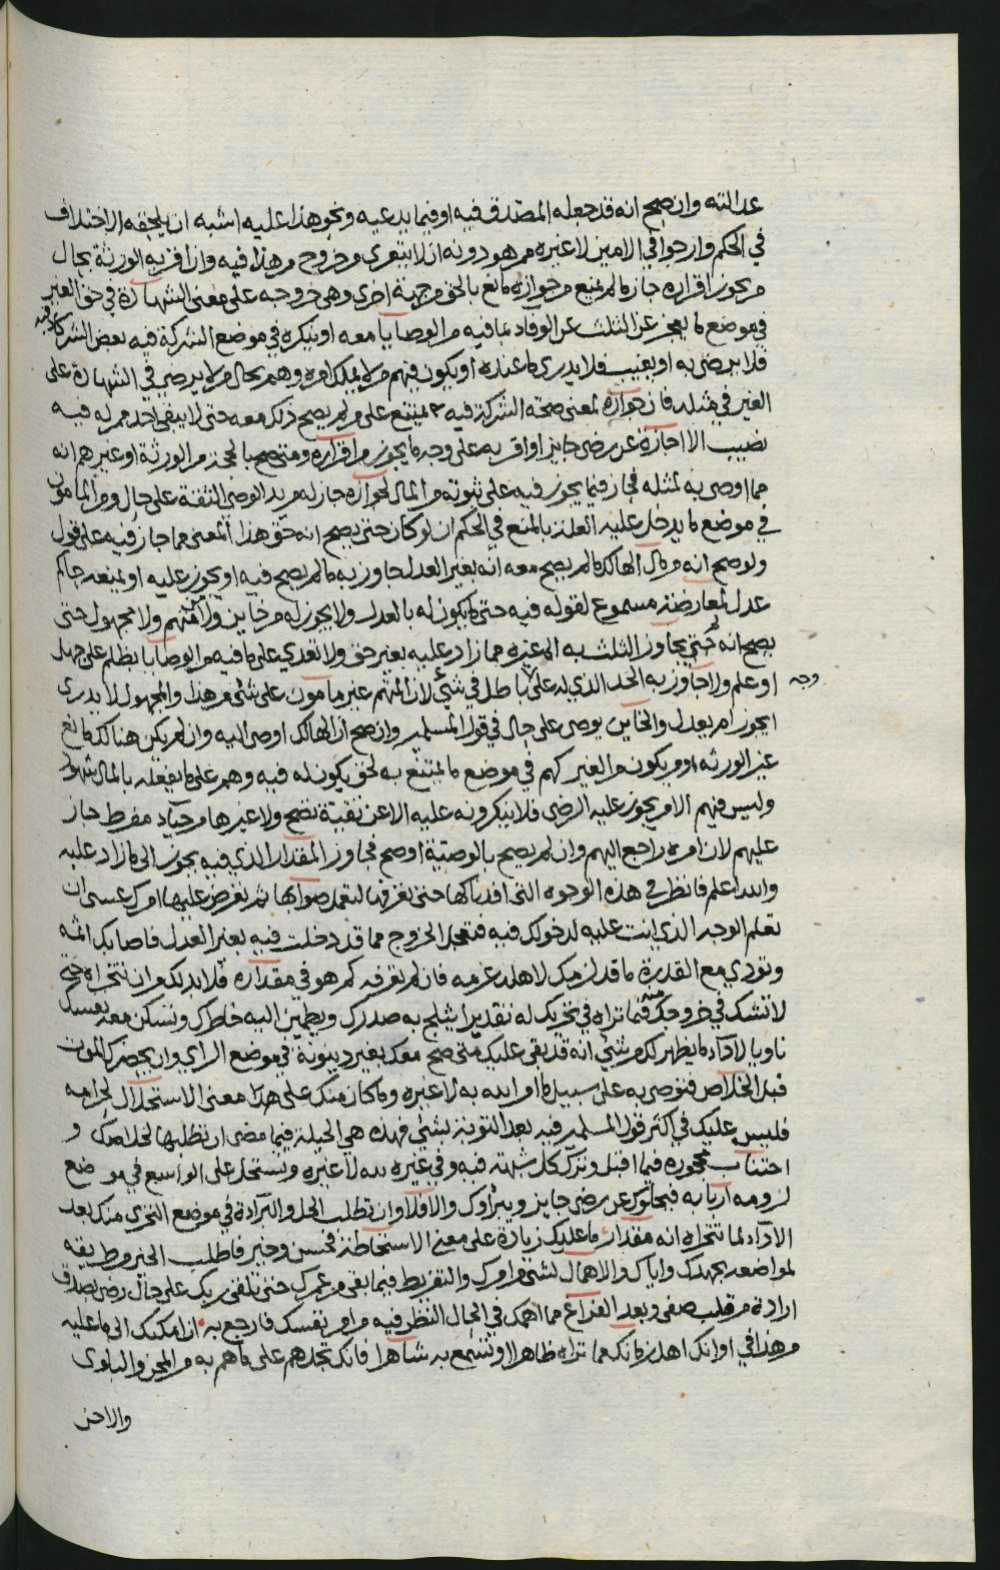 عدالته وان صح انه قد جعله المصدق فيه او فيما يدعيه ونحو هذا عليه اشبه ان يلحقه الاختلاف
في الحكم وارجوا في الامين لا غيره من هو دونه ان لا يتعرى من خروج من هذا فيه وان اقر به الورثة بحال
من يجوز اقراره جاز ما لم يمنع من جوازه مانع بالحق من جهة اخرى وهي خروجه على معنى الشهادة في حق الغير
في موضع ما يعجز عن الثلث عن الوفاء بما فيه من الوصايا معه او ينكره في موضع الشركة فيه بعض الشركاء فيه
فلا يرضى به او يغيب فلا يدرى ما عنده او يكون فيهم من لا يملك امره وهم بحال من لا يرضى في الشهادة على
الغير في مثله فان جوازه لمعنى صحة الشركة فيه ممتنع على من لم يصح ذلك معه حتى لا يبقى احد ممن له فيه
نصيب الا اجازة عن رضى جايز او اقر به على وجه ما يجوز من اقراره ومتى صح بالحجة من الورثة او غيرهم انه
مما اوصى به لمثله فجاز فيما يجوز فيه على ثبوته من المال لجوازه جاز له من يد الوصي الثقة على حال ومن المامون
في موضع ما يدخل عليه العلة بالمنع في الحكم ان لو كان حتى يصح انه حق هذا المعنى مما جاز فيه على قول
ولو صح انه من مال الهالك ما لم يصح معه انه بغير العدل جاوز به ما لم يصح فيه او يجوز عليه او يمنعه حاكم
عدل لمعارضة مسموع لقوله فيه حتى ما يكون له بالعدل ولا يجوز له من خاين ولا متهم ولا مجهول حتى
يصح انه لم حتى يجاوز الثلث به الى غيره مما زاد عليه بغير حق ولا تعدي على ما فيه من الوصايا بظلم على جهل
او علم ولا جاوز به الحد الذي له على وجه باطل في شيء لان المتهم غير مامون على شيء من هذا والمجهول لا يدرى
ايجوز ام يعدل والخاين يوصى على حال في قول المسلمين وان صح ان الهالك اوصى اليه وان لم يكن هنالك مانع
غير الورثه او من يكون من الغير كهم في موضع ما يمتنع به لحق يكون له فيه وهم على ما يفعله بالمال شهود
وليس فيهم الا من يجوز عليه الرضى فلا ينكرونه عليه الا عن تقية تصح ولا غيرها من حياء مفرط جاز
عليهم لان امره راجع اليهم وان لم يصح بالوصية او صح فجاوز المقدار الذي فيه يجوز الى ما زاد عليه
والله اعلم فانظر في هذه الوجوه التي افدناكها حتى تعرفها لتعلم صوابها ثم تعرض عليها امرك عسى ان
تعلم الوجه الذي انت عليه لدخولك فيه فتعجل الخروج مما قد دخلت فيه بغير العدل فاصابك اثمه
وتودي مع القدرة ما قد لزمك لاهله غرمه فان لم تعرفه كم هو في مقداره فلا بد لك من ان تتحراه حتى
لا تشك في خروجك منه فيما تراه في تحريك له تقديرا يثلج به صدرك ويطمين اليه خاطرك وتسكن معه نفسك
ناويا لاداء ما يظهر لك من شيء انه قد بقى عليك متى صح معك بغير دينونة في موضع الراي وان يحضرك الموت
قبل الخلاص فتوصي به على سبيل ما امر الله به لا غيره وما كان منك على هذا معنى الاستحلال لحرامه
فليس عليك في اكثر قول المسلمين فيه بعد التوبة بشيء فهذه هي الحيلة فيما مضى ان تطلبها لخلاصك و
اجتناب محجوره فيما اقبل وترك كل شبهة فيه وفي غيره لله لا غيره ويستحل على الواسع في موضع
لزومه اربابه فيحالوك عن رضى جايز ويبرأوك والا فلا وان تطلب الحل والبرآءة في موضع التحرى منك بعد
الاداء لما تتحراه انه مقدار ما عليك زيادة على معنى الاستحاطة فحسن وخير فاطلب الخير من طريقه
لمواضعه بجهدك واياك والاهمال لشيء من امرك والتفريط فيما بقى من عمرك حتى تلقى ربك على حال رضى بصدق
ارادة من قلب صفى وبعد الفراغ مما اهمك في الحال النظر فيه من امر نفسك فارجع به ان امكنك الى ما عليه
من هذا في اوانك اهل زمانك مما تراه ظاهرا او تسمع به شاهرا فانك تجدهم على ما هم به من المحن والبلوى
والاحن